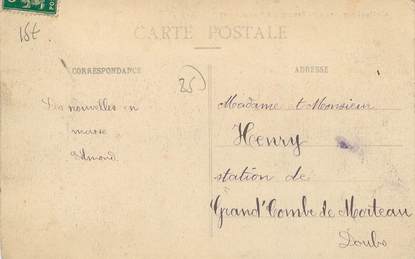 15t
CARTE POSTALE
CORRESPONDANCE
25)
ADRESSE
Les nouvelles en
masse
Edmond
Madame & Monsieur
Henry
station de
Grand'Combe de Morteau
Doubs